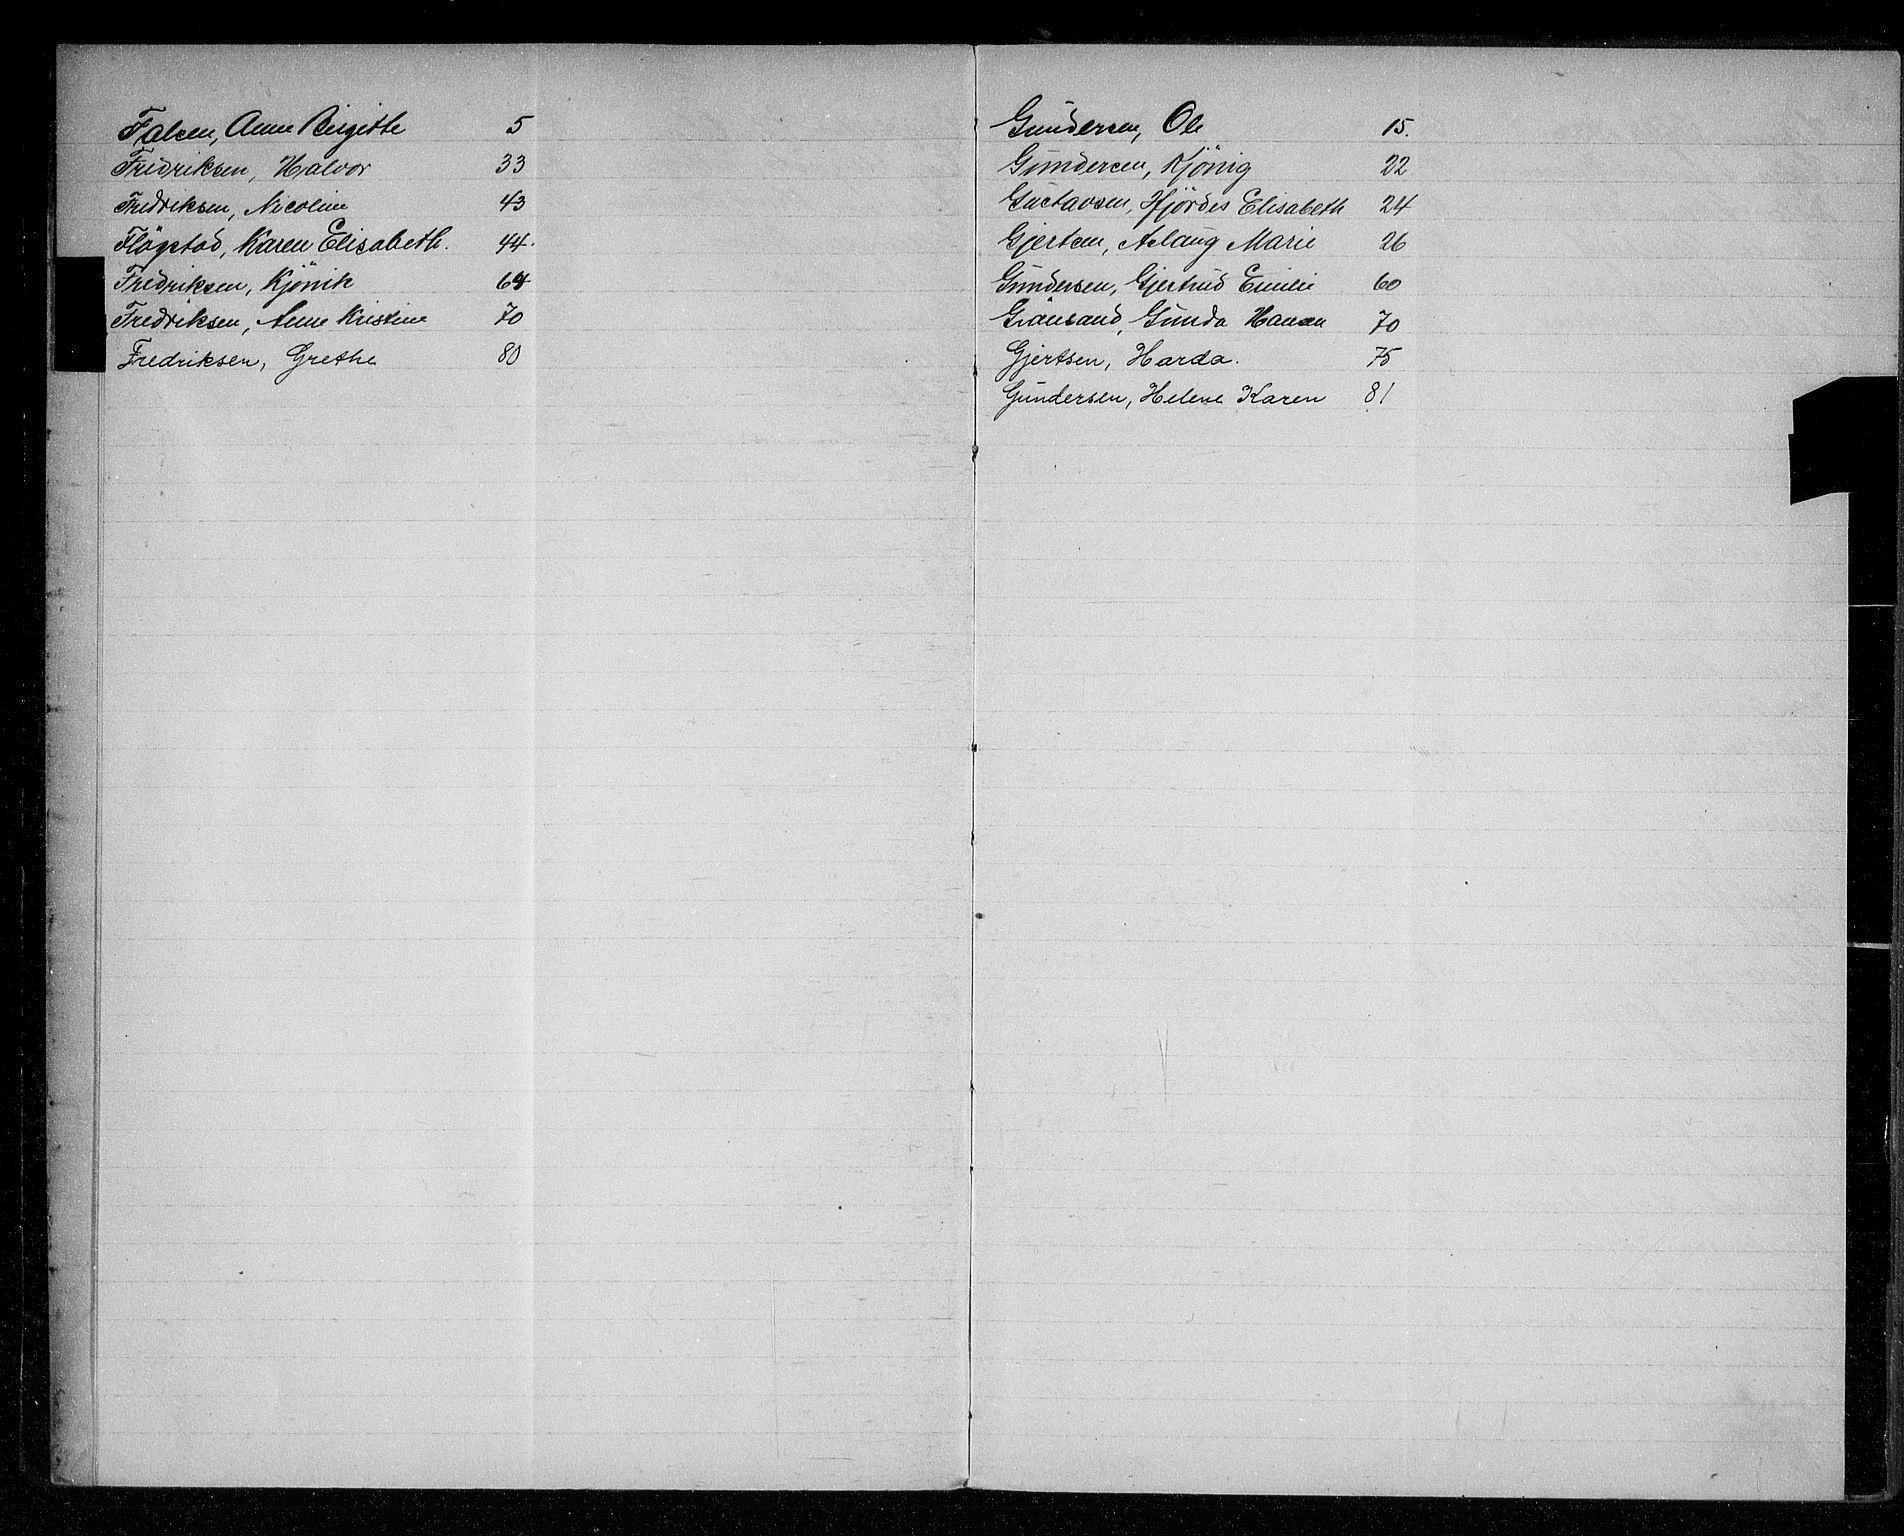 Falsen, Anne Birgitte 5
Fredriksen, Halvor 33
Fredriksen, Nicoline 43
Flögstad, Karen Elisabeth. 44.
Fredriksen, Kjönik 64
Fredriksen, Anne Kristine 70
Fredriksen, Grethe 80
Gundersen, Ole 15.
Gundersen, Kjönig 22
Gustavsen, Hjördes Elisabeth 24
Gjertsen, Aslaug Marie 26
Gundersen, Gjertrud Emilie 60
Gunda Hansen 70
Gjertsen, Harda. 75
Gundersen, Helene Karen 81